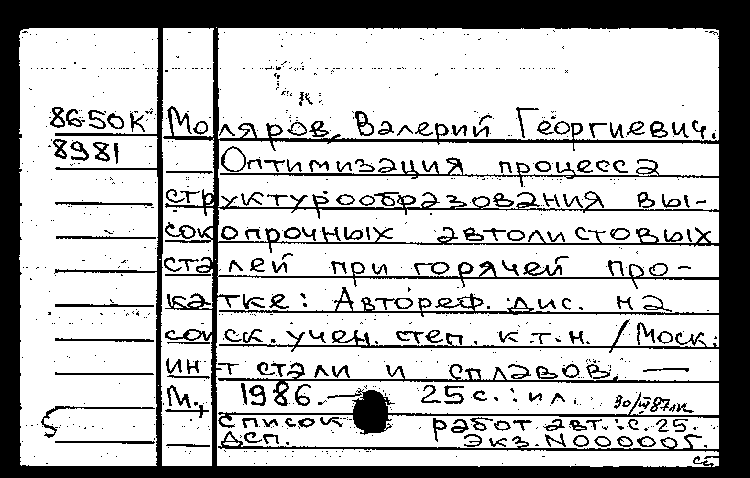 86-50К Моляров, Валерий Георгиевич.
8981 Оптимизация процесса
структурообразования вы-
сокопрочных автолистовых
сталей при горячей про-
катке: Автореф. дис. на
соиск. учен. степ. к.т.н. /Моск.
ин-т стали и сплавов. —
М., 1986. — 25 с. : ил.
список работ авт.: с. 25.
ДСП. Экз. N000005.